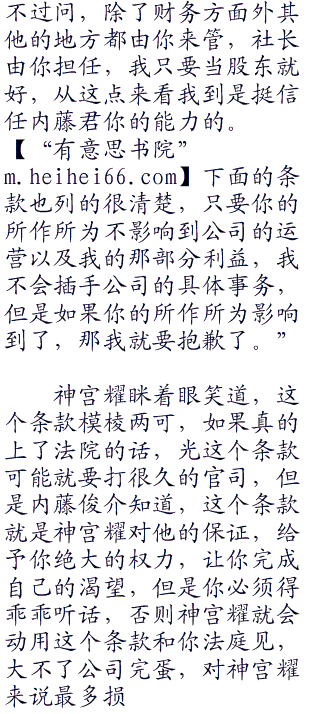 不过问，除了财务方面外其
他的地方都由你来管，社长
由你担任，我只要当股东就
好，从这点来看我到是挺信
任内藤君你的能力的。
【“有意思书院”
m.heihei66.com】下面的条
款也列的很清楚，只要你的
所作所为不影响到公司的运
营以及我的那部分利益，我
不会插手公司的具体事务，
但是如果你的所作所为影响
到了，那我就要抱歉了。”
神宫耀眯着眼笑道，这
个条款模棱两可，如果真的
上了法院的话，光这个条款
可能就要打很久的官司，但
是内藤俊介知道，这个条款
就是神宫耀对他的保证，给
予你绝大的权力，让你完成
自己的渴望，但是你必须得
乖乖听话，否则神宫耀就会
动用这个条款和你法庭见，
大不了公司完蛋，对神宫耀
来说最多损